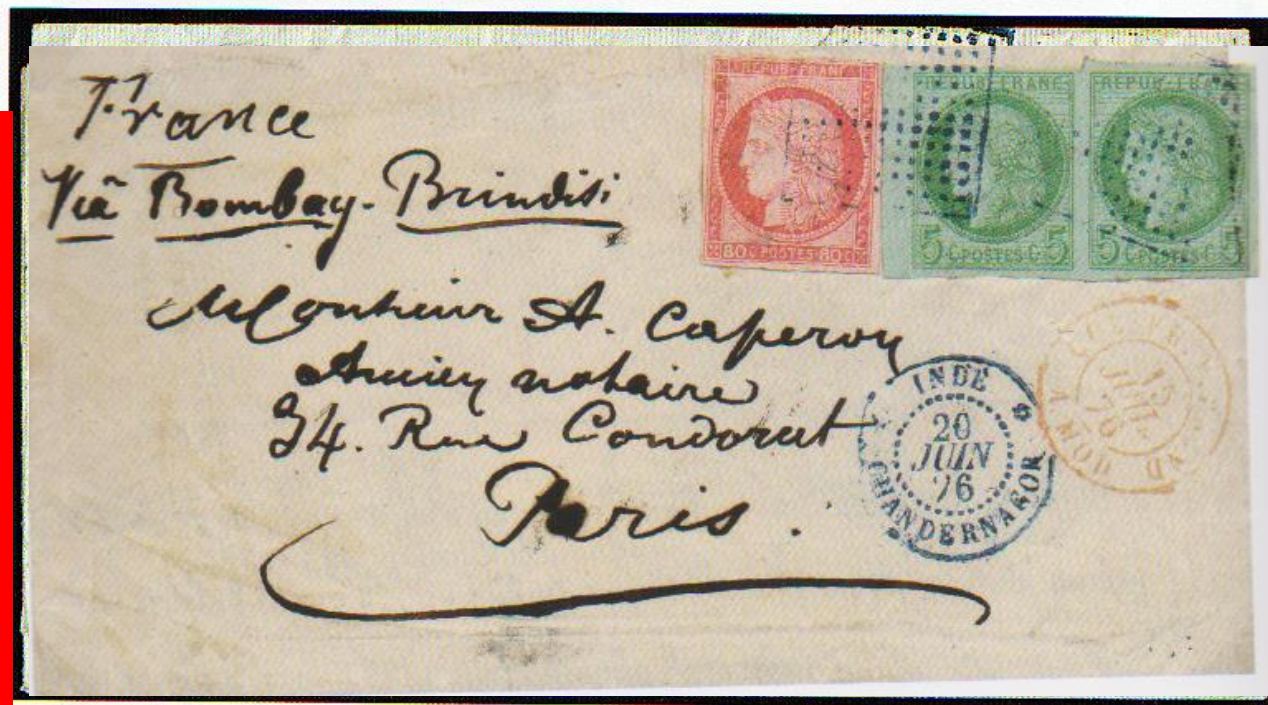 France
Viâ Bombay-Brindisi
REPUB. FRANC
80 C. POSTES 80 C.
REPUB. FRANC
5 C. POSTES C. 5
REPUB. FRANC
5 C. POSTES C. 5
Monsieur A. Caperon
Ancien notaire
34. Rue Condorcet
Paris.
INDE
20
JUIN
76
CHANDERNAGOR
15
JUIL
76